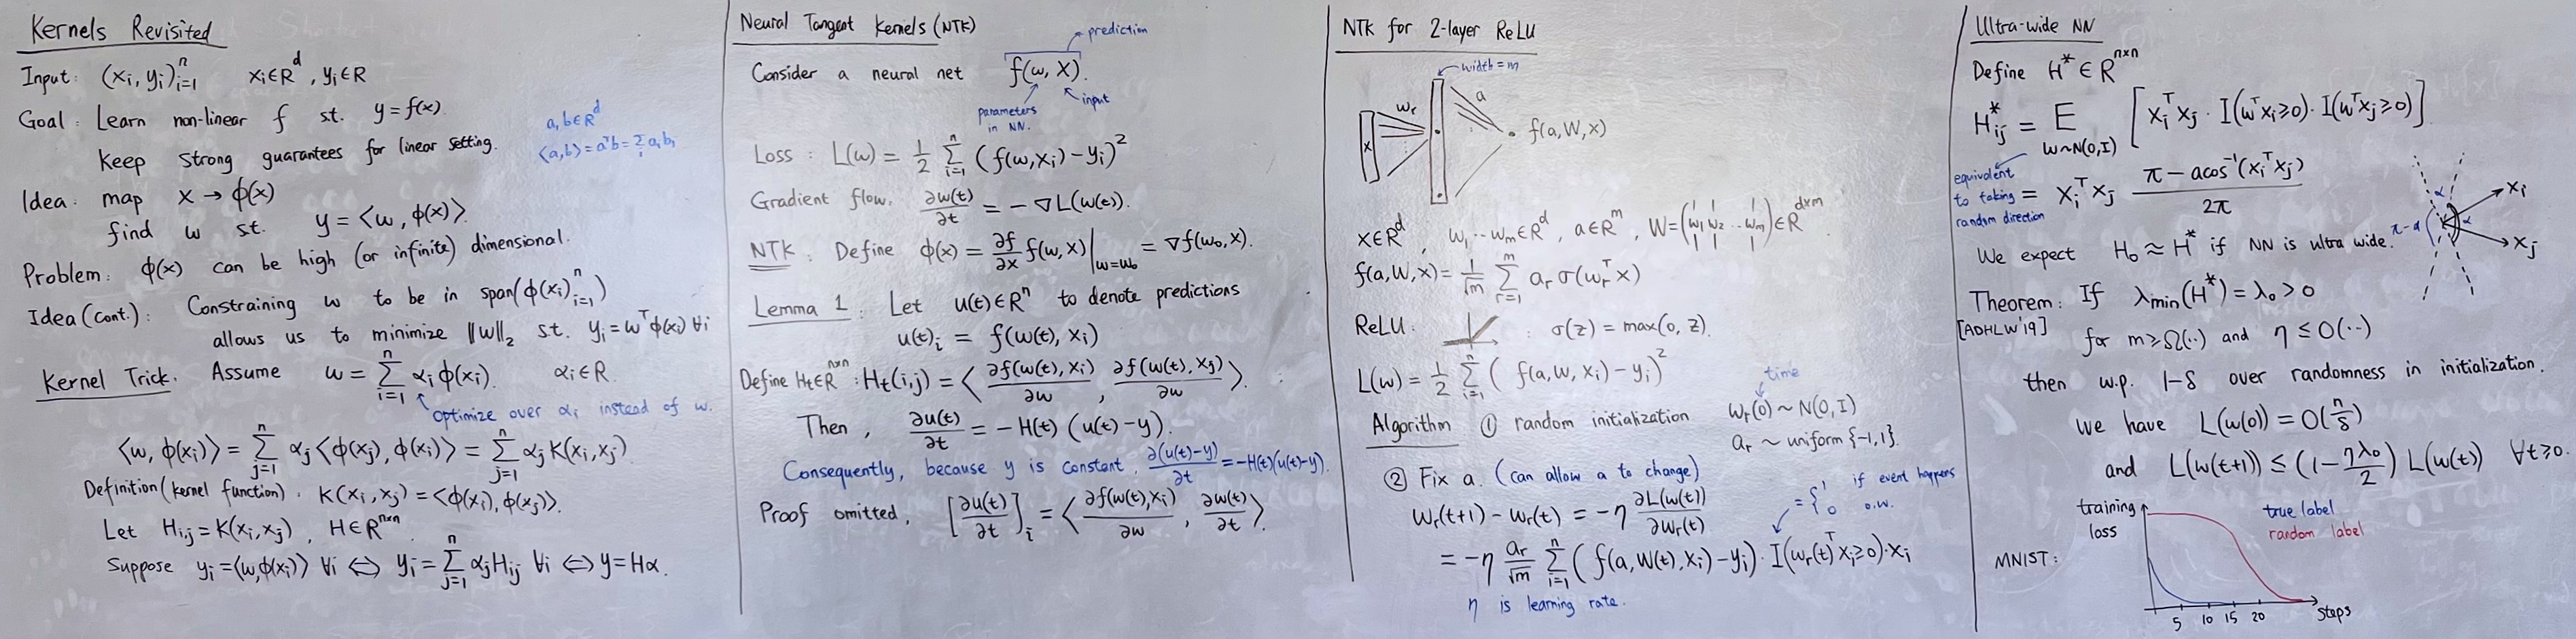 Kernels Revisited
Input: (xᵢ, yᵢ)ⁿᵢ₌₁ xᵢ∈Rᵈ, yᵢ∈R
Goal: Learn non-linear f st. y=f(x)
keep strong guarantees for linear setting.
a,b∈Rᵈ
⟨a,b⟩=aᵀb=Σᵢ aᵢbᵢ
Idea: map x → ϕ(x)
find w st. y = ⟨w, ϕ(x)⟩.
Problem: ϕ(x) can be high (or infinite) dimensional.
Idea (cont.): Constraining w to be in span(ϕ(xᵢ)ⁿᵢ₌₁)
allows us to minimize ‖w‖₂ s.t. yᵢ=wᵀϕ(xᵢ) ∀i
Kernel Trick. Assume w = Σⁿᵢ₌₁ αᵢϕ(xᵢ). αᵢ∈R.
optimize over αᵢ instead of w.
⟨w, ϕ(xᵢ)⟩ = Σⁿⱼ₌₁ αⱼ⟨ϕ(xⱼ), ϕ(xᵢ)⟩ = Σⁿⱼ₌₁ αⱼK(xᵢ,xⱼ).
Definition (kernel function). K(xᵢ,xⱼ) = ⟨ϕ(xᵢ), ϕ(xⱼ)⟩.
Let Hᵢ,ⱼ=K(xᵢ,xⱼ), H∈Rⁿˣⁿ.
Suppose yᵢ=⟨w,ϕ(xᵢ)⟩ ∀i ⇔ yᵢ=Σⁿⱼ₌₁ αⱼHᵢⱼ ∀i ⇔ y=Hα.
Neural Tangent Kernels (NTK)
prediction
Consider a neural net f(w,X).
parameters in NN.
input
Loss: L(w) = 1/2 Σⁿᵢ₌₁ (f(w,xᵢ)−yᵢ)²
Gradient flow. ∂w(t)/∂t = −∇L(w(t)).
NTK: Define ϕ(x) = ∂f/∂x f(w,x)|_{w=w₀} = ∇f(w₀,x).
Lemma 1: Let u(t)∈Rⁿ to denote predictions
u(t)ᵢ = f(w(t), xᵢ)
Define Hₜ∈Rⁿˣⁿ: Hₜ(i,j) = ⟨∂f(w(t),xᵢ)/∂w, ∂f(w(t),xⱼ)/∂w⟩.
Then, ∂u(t)/∂t = −H(t)(u(t)−y).
Consequently, because y is constant, ∂(u(t)−y)/∂t = −H(t)(u(t)−y).
Proof omitted, [∂u(t)/∂t]ᵢ = ⟨∂f(w(t),xᵢ)/∂w, ∂w(t)/∂t⟩.
NTK for 2-layer ReLU
width=m
x wᵣ a f(a,W,x)
x∈Rᵈ, w₁...wₘ∈Rᵈ, a∈Rᵐ, W=(w₁ w₂ ... wₘ)∈Rᵈˣᵐ.
f(a,W,x) = 1/√m Σᵐᵣ₌₁ aᵣσ(wᵣᵀx)
ReLU: : σ(z) = max(0, z).
L(w) = 1/2 Σⁿᵢ₌₁ (f(a,W,xᵢ)−yᵢ)²
time
Algorithm ① random initialization wᵣ(0) ~ N(0,I)
aᵣ ~ uniform {−1,1}.
② Fix a. (can allow a to change)
wᵣ(t+1) − wᵣ(t) = −η ∂L(w(t))/∂wᵣ(t)
= {1 if event happens
0 o.w.
= −η aᵣ/√m Σⁿᵢ₌₁ (f(a,W(t),xᵢ)−yᵢ)·I(wᵣ(t)ᵀxᵢ≥0)·xᵢ
η is learning rate.
Ultra-wide NN
Define H*∈Rⁿˣⁿ
H*ᵢⱼ = E_{w~N(0,I)} [xᵢᵀxⱼ · I(wᵀxᵢ≥0)· I(wᵀxⱼ≥0)].
equivalent to taking random direction
= xᵢᵀxⱼ (π − acos⁻¹(xᵢᵀxⱼ))/2π
α α π−α xᵢ xⱼ
We expect H₀ ≈ H* if NN is ultra wide.
Theorem: If λmin(H*) = λ₀ > 0
[ADHLW'19] for m ≥ Ω(··) and η ≤ O(··)
then w.p. 1−δ over randomness in initialization.
we have L(w(0)) = O(n/δ)
and L(w(t+1)) ≤ (1 − ηλ₀/2) L(w(t)) ∀t≥0.
training loss
true label
random label
MNIST:
5 10 15 20 steps